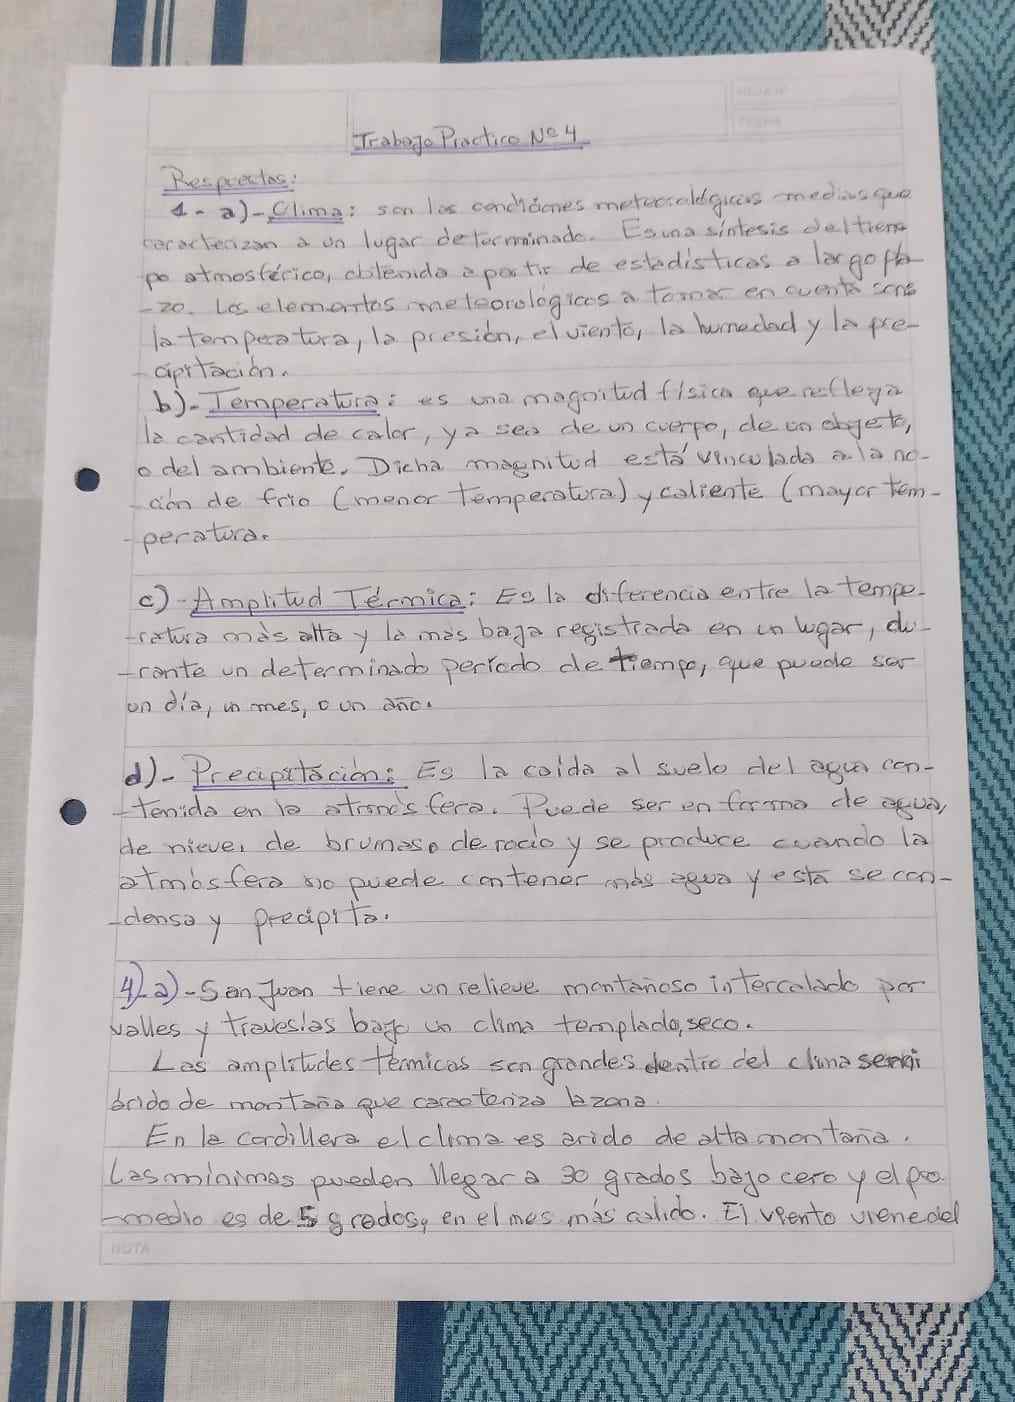 Trabajo Practico Nº 4
Respuestas:
1- a)- Clima: son las condiciones meteorológicas medias que
caracterizan a un lugar determinado. Es una síntesis del tiem
po atmosférico, obtenida a partir de estadísticas a largo pla-
-zo. Los elementos meteorológicos a tomar en cuenta sons
la temperatura, la presión, el viento, la humedad y la pre-
-cipitación.
b)- Temperatura: es una magnitud física que refleja
la cantidad de calor, ya sea de un cuerpo, de un objeto,
o del ambiente. Dicha magnitud está vinculada a la no-
-ción de frio (menor temperatura) y caliente (mayor tem-
-peratura.
c)- Amplitud Térmica: Es la diferencia entre la tempe-
-ratura más alta y la más baja registrada en un lugar, du-
-rante un determinado período de tiempo, que puede ser
un día, un mes, o un año.
d)- Precipitación: Es la caída al suelo del agua con-
-tenida en la atmósfera. Puede ser en forma de agua,
de nieve, de brumas o de rocío y se produce cuando la
atmósfera no puede contener más agua y está se con-
-densa y precipita.
4)- a)- San Juan tiene un relieve montañoso intercalado por
valles y travesías bajo un clima templado, seco.
Las amplitudes térmicas son grandes dentro del clima semi
árido de montaña que caracteriza la zona.
En la cordillera el clima es arido de alta montaña.
Las mínimas pueden llegar a 30 grados bajo cero y el pro
-medio es de 5 grados, en el mes más calido. El viento viene del
NOTA